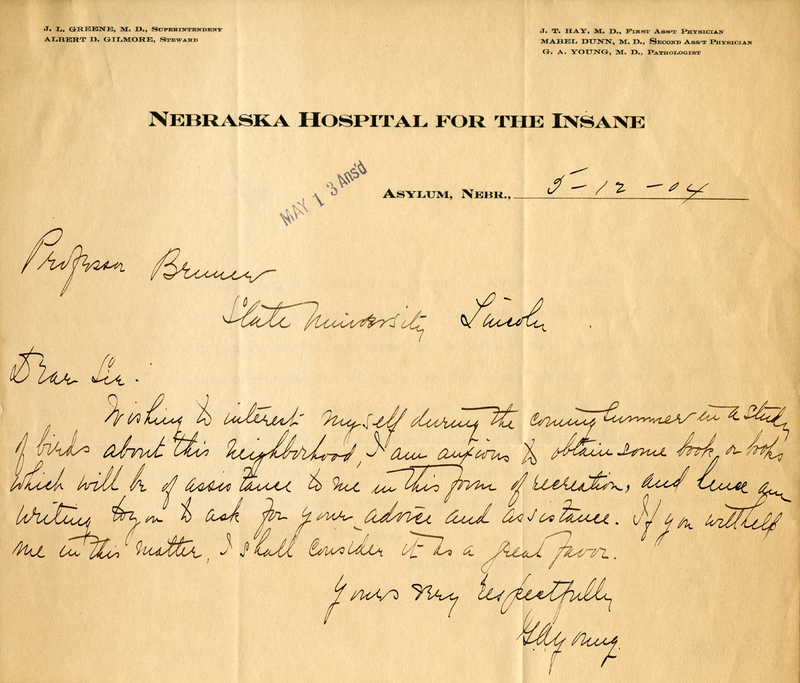 J. L. GREENE, M. D., SUPERINTENDENT
ALBERT D. GILMORE, STEWARD
J. T. HAY, M. D., FIRST ASS'T PHYSICIAN
MABEL DUNN, M. D., SECOND ASS'T PHYSICIAN
G. A. YOUNG, M. D., PATHOLOGIST
NEBRASKA HOSPITAL FOR THE INSANE
MAY 13 Ans'd
ASYLUM, NEBR., 5-12-04
Professor Bruner
State University Lincoln.
Dear Sir:
Wishing to interest myself during the coming Summer in a study
of birds about this neighborhood, I am anxious to obtain some book, or books
which will be of assistance to me in this form of recreation, and hense am
writing to you to ask for your advice and assistance. If you will help
me in this matter, I shall consider it as a great favor.
Yours very respectfully
G.A. Young.